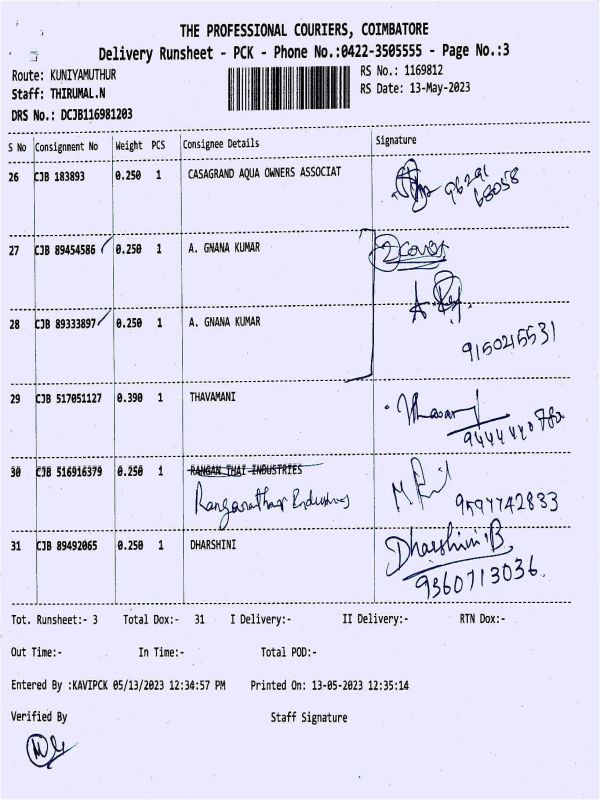 THE PROFESSIONAL COURIERS, COIMBATORE
Delivery Runsheet - PCK - Phone No.:0422-3505555 - Page No.:3
Route: KUNIYAMUTHUR
RS No.: 1169812
Staff: THIRUMAL.N
RS Date: 13-May-2023
DRS No.: DCJB116981203
S No Consignment No Weight PCS Consignee Details Signature
26 CJB 183893 0.250 1 CASAGRAND AQUA OWNERS ASSOCIAT
96291
68058
27 CJB 89454586 0.250 1 A. GNANA KUMAR 2 Cover
28 CJB 89333897 0.250 1 A. GNANA KUMAR
9150215531
29 CJB 517051127 0.390 1 THAVAMANI
30 CJB 516916379 0.250 1 RANGAN THAI INDUSTRIES
9597742833
31 CJB 89492065 0.250 1 DHARSHINI Dharshini.B
9360713036.
Tot. Runsheet:- 3 Total Dox:- 31 I Delivery:- II Delivery:- RTN Dox:-
Out Time:- In Time:- Total POD:-
Entered By :KAVIPCK 05/13/2023 12:34:57 PM Printed On: 13-05-2023 12:35:14
Verified By Staff Signature